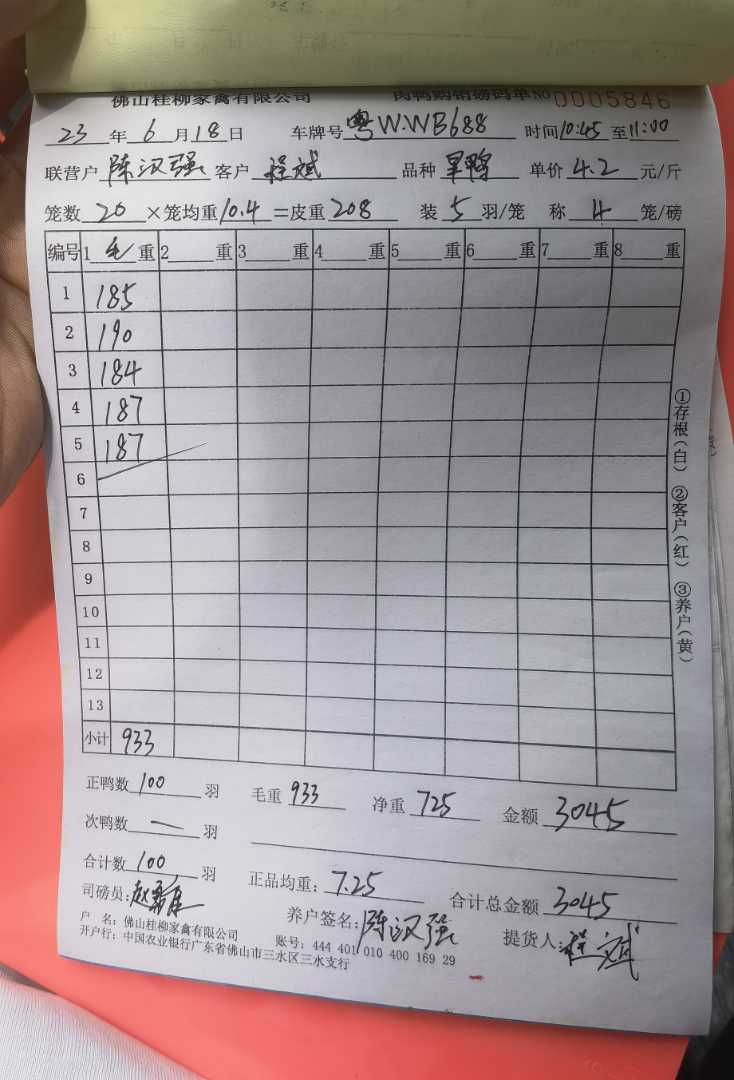 佛山桂柳家禽有限公司 肉鸭购销磅码单 No 0005846
23年6月18日 车牌号 粤W·WB688 时间10:45至11:00
联营户 陈汉强 客户 程斌 品种 旱鸭 单价 4.2 元/斤
笼数 20 ×笼均重 10.4 =皮重 208 装 5 羽/笼 称 4 笼/磅
编号 1 毛 重 2 重 3 重 4 重 5 重 6 重 7 重 8 重
1 185
2 190
3 184
4 187
5 187
6
7
8
9
10
11
12
13
小计 933
①存根(白) ②客户(红) ③养户(黄)
正鸭数 100 羽 毛重 933 净重 725 金额 3045
次鸭数 — 羽
合计数 100 羽 正品均重: 7.25 合计总金额 3045
司磅员: 养户签名: 陈汉强 提货人: 程斌
户 名: 佛山桂柳家禽有限公司 账号: 444 401 010 400 169 29
开户行: 中国农业银行广东省佛山市三水区三水支行